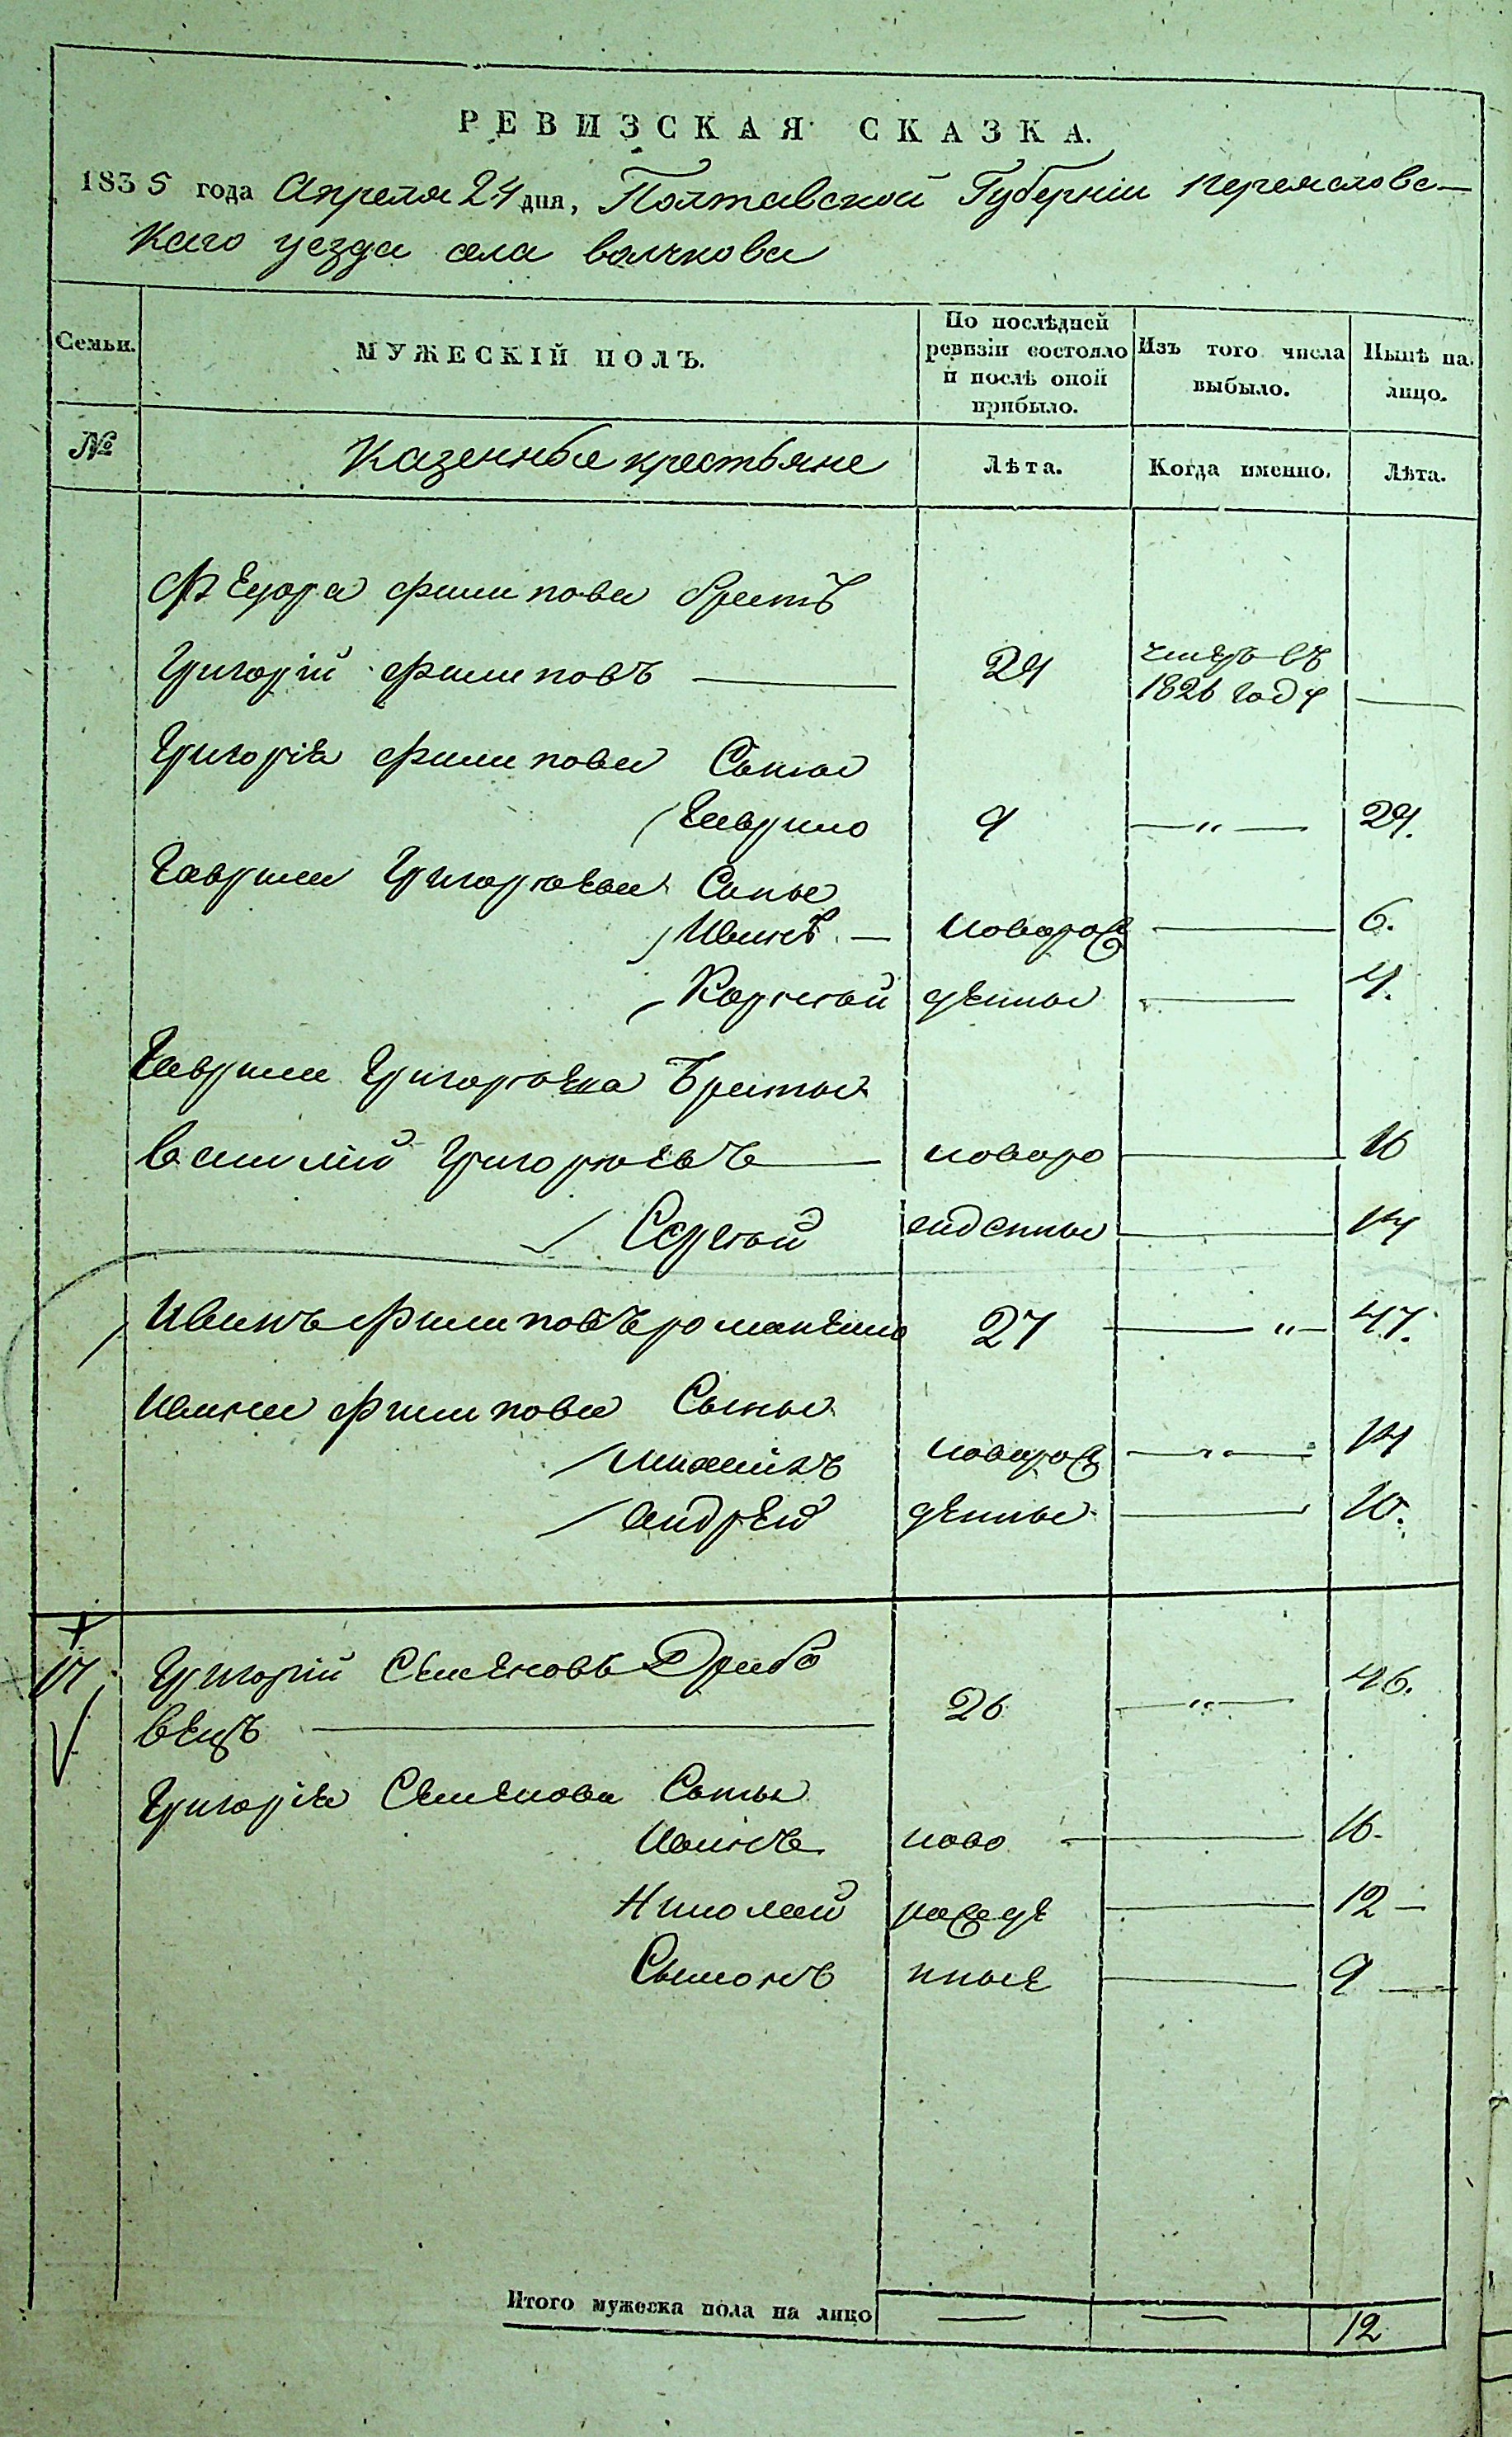 РЕВИЗСКАЯ СКАЗКА.
1835 года Апреля 24 дня, Полтавской Губерніи Переяславс-
каго уезда села волчкова
Семьи. МУЖЕСКІЙ ПОЛЪ. По послѣдней ревизіи состояло и послѣ оной прибыло. Изъ того числа выбыло. Нынѣ на лицо.
№ Казенные крестьяне Лѣта. Когда именно. Лѣта.
Федора филипова братъ
Григорій филиповъ 29 умеръ въ 1826 году
Григорія филипова Сыны
Гаврило 9 29.
Гаврила Григорьева Сыны
Иванъ новорож 6.
Корней денные 4.
Гаврила Григорьева Братья
василій Григорьевъ новоро 16
Сергей жденные 14
Иванъ филиповъ романенко 27 47.
Ивана филипова Сыны
михаилъ новорож 14
андрей денные 10.
17. Григорій Семеновъ Драбо
вецъ 26 46.
Григорія Семенова Сыны
Иванъ ново 16.
Николай рожде 12
Сымонъ нные 9
Итого мужеска пола на лицо 12